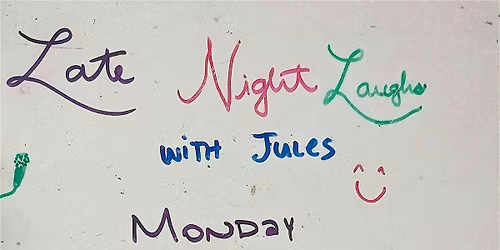 Late Night Laughs
with Jules
Monday